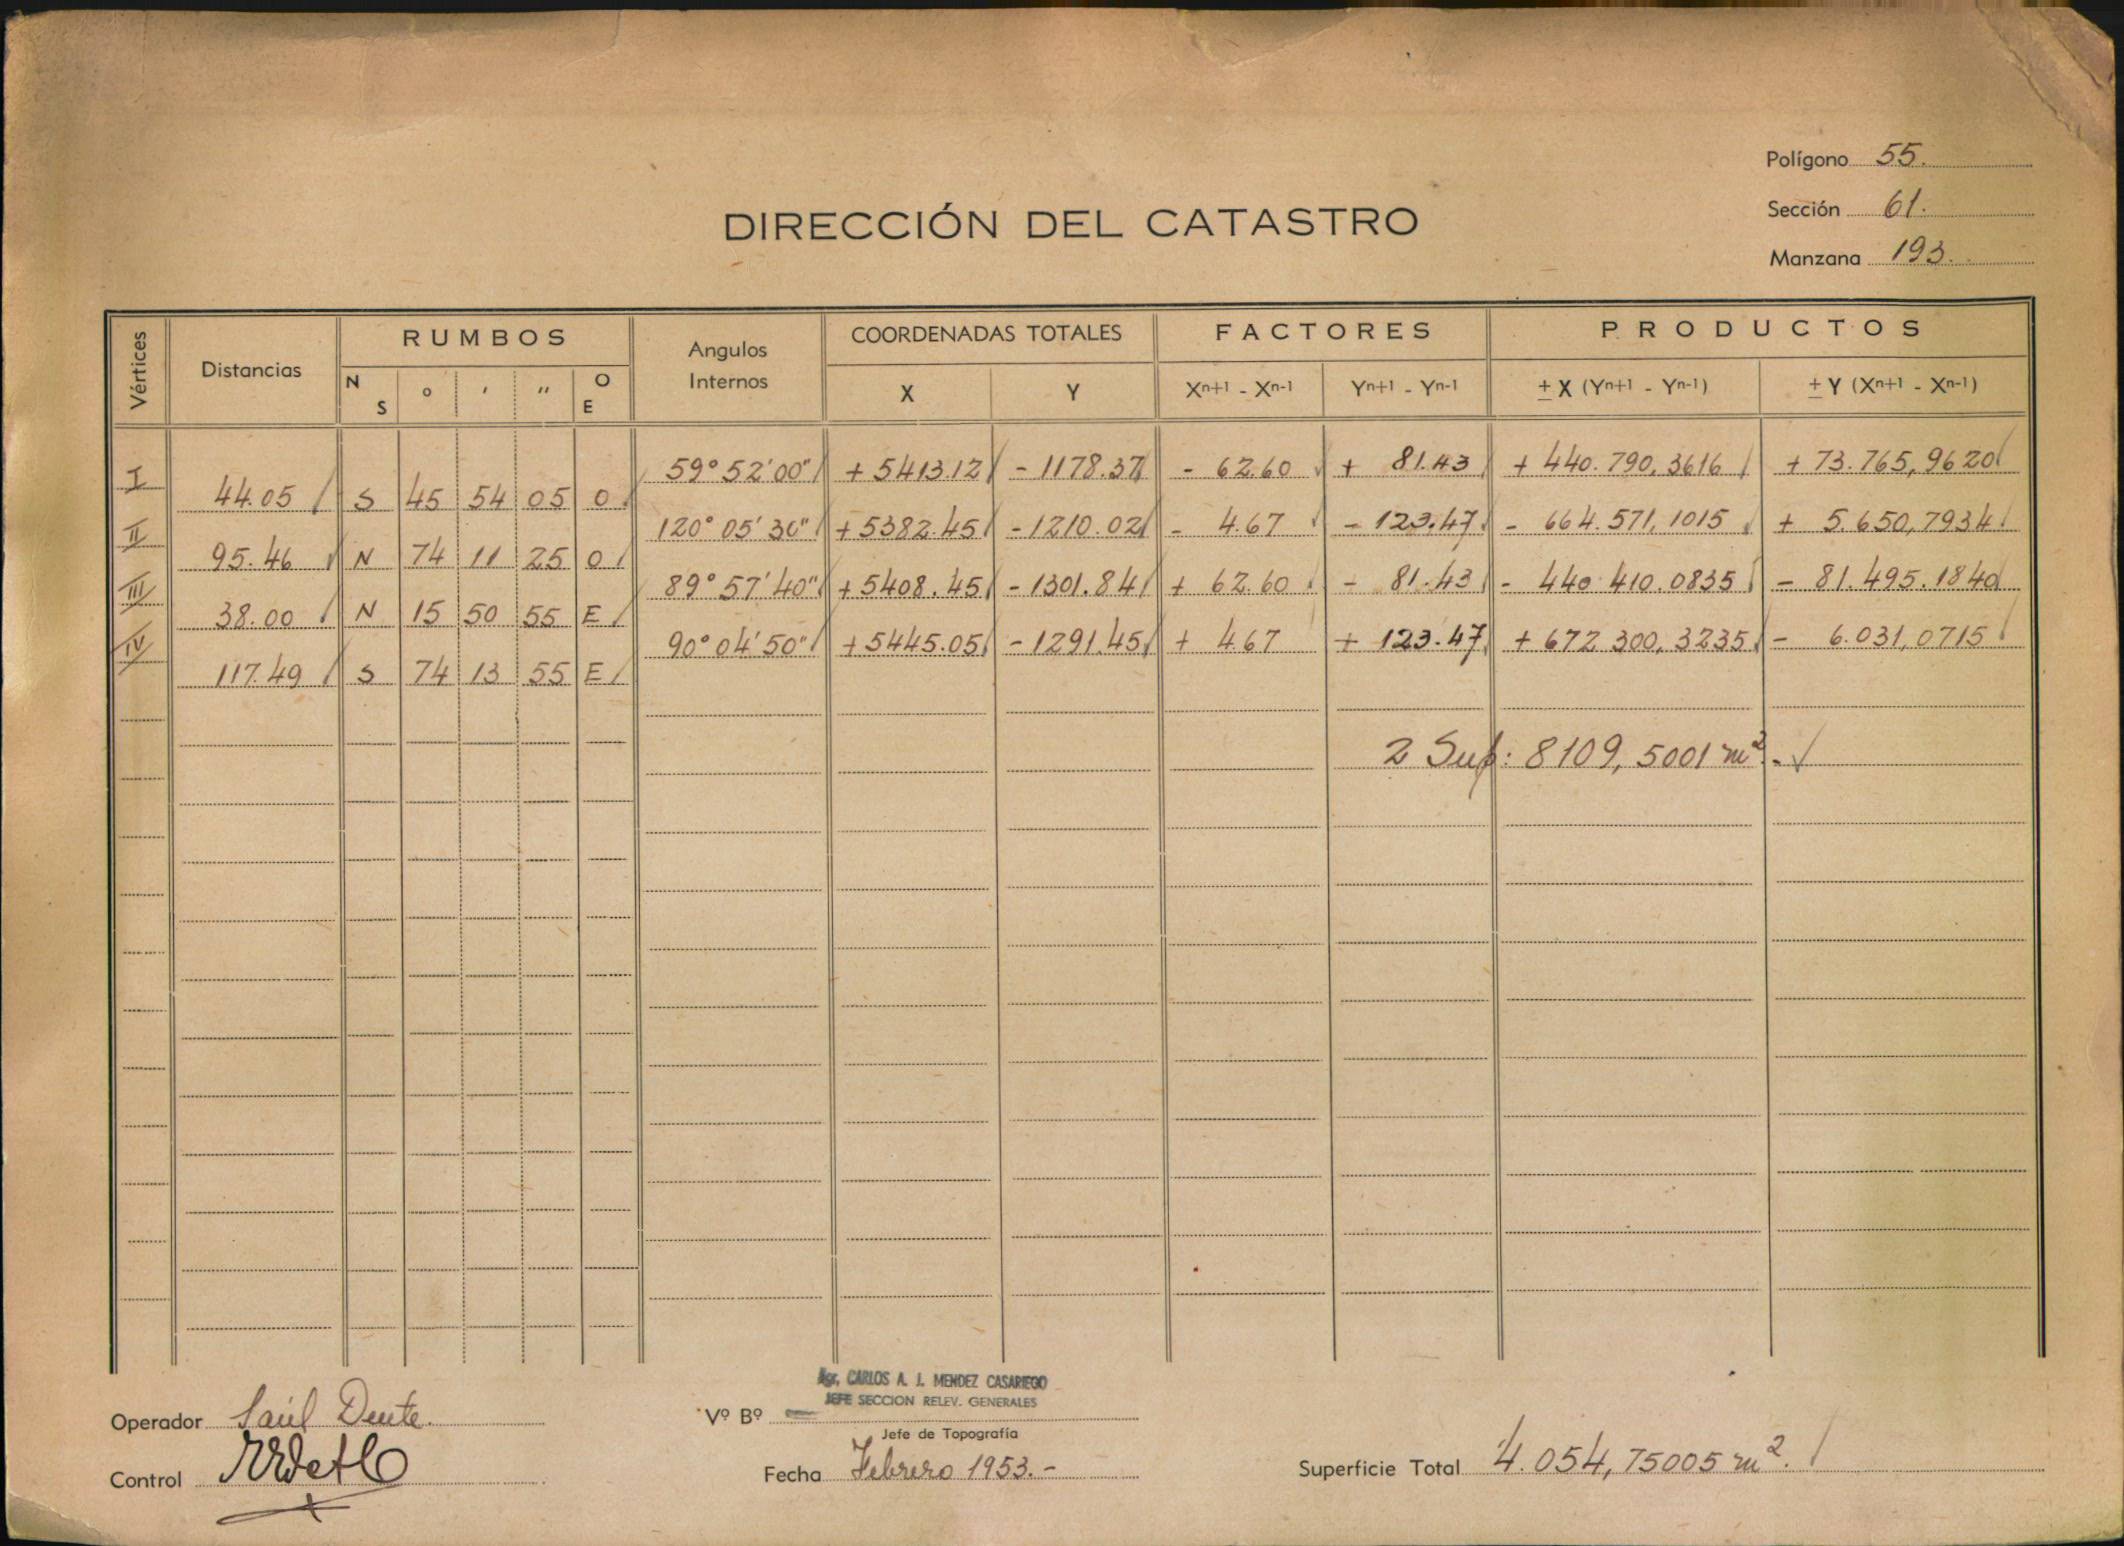 Polígono 55.
Sección 61.
Manzana 193.
DIRECCIÓN DEL CATASTRO
Vértices Distancias RUMBOS Angulos Internos COORDENADAS TOTALES FACTORES PRODUCTOS
N S ° ' " O E X Y Xn+1 - Xn-1 Yn+1 - Yn-1 ± X (Yn+1 - Yn-1) ± Y (Xn+1 - Xn-1)
I 59° 52' 00" + 5413.12 - 1178.37 - 62.60 + 81.43 + 440.790,3616 + 73.765,9620
44.05 S 45 54 05 O
II 120° 05' 30" + 5382.45 - 1210.02 - 4.67 - 123.47 - 664.571,1015 + 5.650,7934
95.46 N 74 11 25 O
III 89° 57' 40" + 5408.45 - 1301.84 + 62.60 - 81.43 - 440 410.0835 - 81.495.1840
38.00 N 15 50 55 E
IV 90° 04' 50" + 5445.05 - 1291.45 + 4.67 + 123.47 + 672 300,3235 - 6.031,0715
117.49 S 74 13 55 E
2 Sup: 8109,5001 m².-
Agr. CARLOS A. J. MENDEZ CASARIEGO
JEFE SECCION RELEV. GENERALES
Operador Saúl Dente.
Vº Bº
Jefe de Topografía
Control
Fecha Febrero 1953.-
Superficie Total 4.054,75005 m².